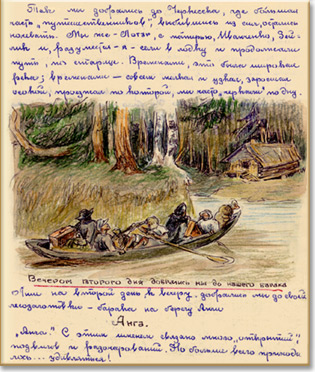 Так мы добрались до Черкесска, где большая
часть "путешественников", выбившись из сил, остались
ночевать. Мы же - Лотар, с матерью, Иванченко, Зай-
лик и, разумеется, я - сели в лодку и продолжали
путь, по снегаме. Временами, это была широкая
река, временами - совсем мелкая и узкая, заросшая
осокой, проезжая по которой мы часто "чиркали" по дну.
Вечером второго дня добрались мы до нашего барака
Лишь на второй день к вечеру добрались мы до своей
лесозаготовки - барака на берегу Анги
Анга.
"Анга." С этим именем связано много "открытий",
подвигов и разочарований. Но больше всего приходи-
лось... удивляться!